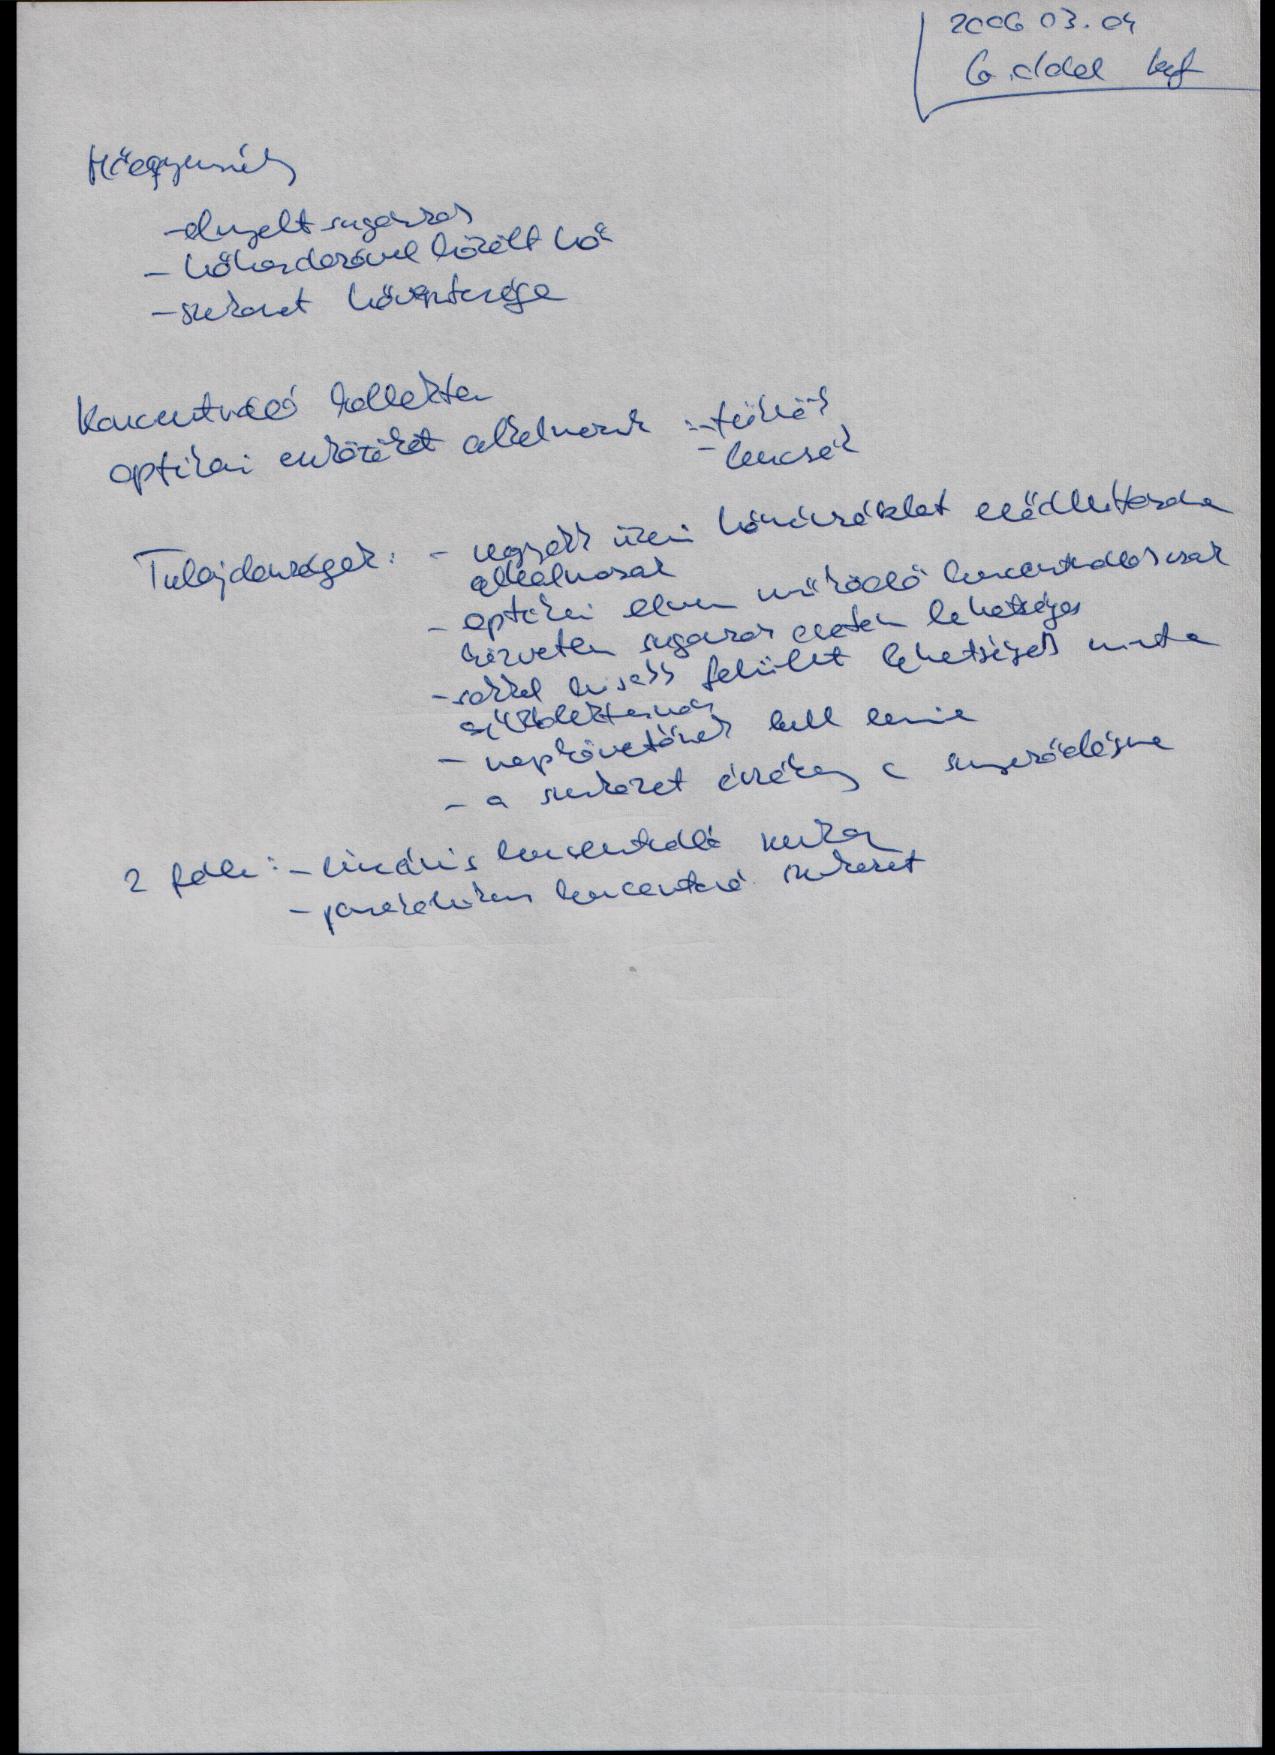 2006 03.04
6. oldal
Hőegyensúly
- elnyelt sugárzás
- hőhordozóval közölt hő
- szerkezet hővesztesége
Koncentráló kollektor
optikai eszközöket alkalmazunk : - tükrök
- lencsék
Tulajdonságok: - nagyobb üzemi hőmérséklet előállítására
alkalmasak
- optikai elven működő koncentrálás csak
közvetlen sugárzás esetén lehetséges
- sokkal kisebb felület lehetséges mint a
síkkollektornál
- napkövetőnek kell lennie
- a szerkezet érzékeny a szennyeződésre
2 féle : - lineáris koncentráló
- parabolikus koncentráló szerkezet